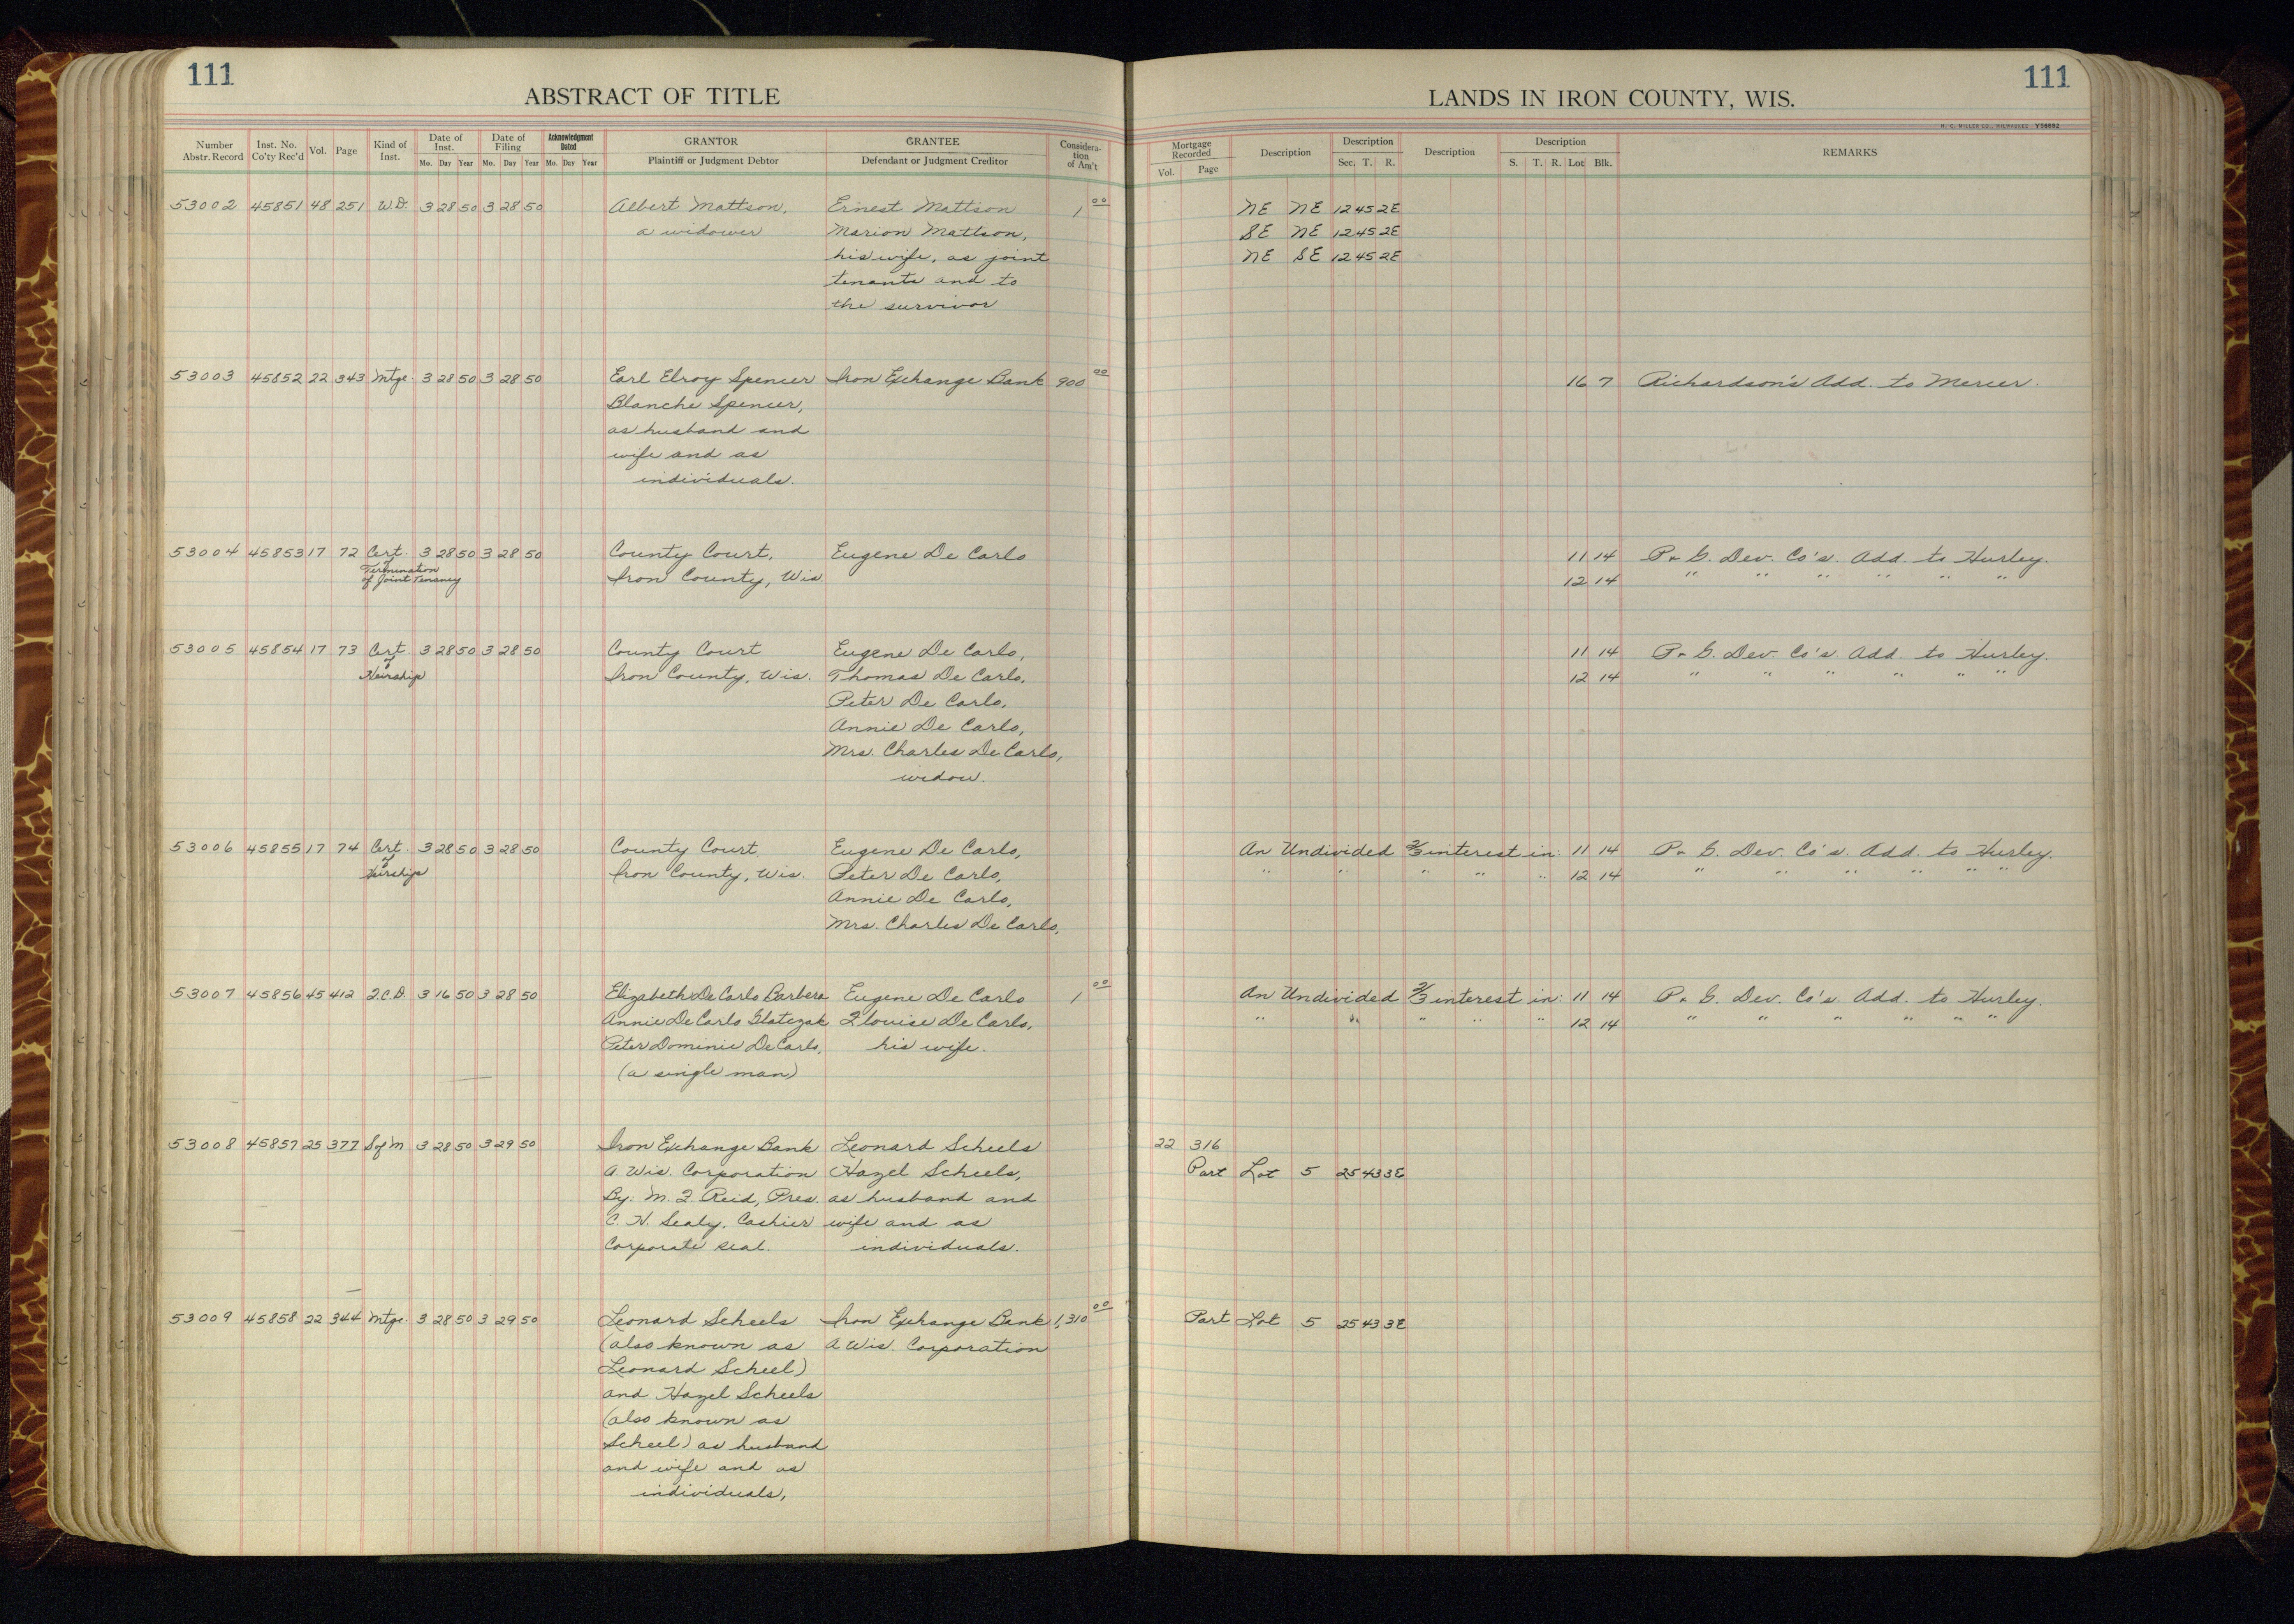 111
ABSTRACT OF TITLE
Number Abstr. Record Inst. No. Co'ty Rec'd Vol. Page Kind of Inst. Date of Inst. Mo. Day Year Date of Filing Mo. Day Year Acknowledgment Dated Mo. Day Year GRANTOR Plaintiff or Judgment Debtor GRANTEE Defendant or Judgment Creditor Considera-tion of Am't
111
LANDS IN IRON COUNTY, WIS.
H. C. MILLER CO., MILWAUKEE V56662
Mortgage Recorded Vol. Page Description Description Sec. T. R. Description Description S. T. R. Lot Blk. REMARKS
53002 45851 48 251 W.D. 3 28 50 3 28 50 Albert Mattson, Ernest Mattson 1 00 NE NE 12 45 2E
a widower Marion Mattson, SE NE 12 45 2E
his wife, as joint NE SE 12 45 2E
tenants and to
the survivor
53003 45852 22 343 Mtge. 3 28 50 3 28 50 Earl Elroy Spencer Iron Exchange Bank 900 00 16 7 Richardson's Add. to Mercer.
Blanche Spencer,
as husband and
wife and as
individuals.
53004 45853 17 72 Cert. of 3 28 50 3 28 50 County Court, Eugene De Carlo 11 14 P. & G. Dev. Co's. Add. to Hurley.
Termination of Joint Tenancy Iron County, Wis. 12 14 " " " " " "
53005 45854 17 73 Cert. of 3 28 50 3 28 50 County Court Eugene De Carlo, 11 14 P. & G. Dev. Co's. Add. to Hurley.
Heirship Iron County, Wis. Thomas De Carlo, 12 14 " " " " " "
Peter De Carlo,
Annie De Carlo,
Mrs. Charles De Carlo,
widow.
53006 45855 17 74 Cert. of 3 28 50 3 28 50 County Court, Eugene De Carlo, An Undivided 2/3 interest in: 11 14 P. & G. Dev. Co's. Add. to Hurley.
Heirship Iron County, Wis. Peter De Carlo, " " " " " 12 14 " " " " " "
Annie De Carlo,
Mrs. Charles De Carlo,
53007 45856 45 412 Q.C.D. 3 16 50 3 28 50 Elizabeth De Carlo Barbera Eugene De Carlo 1 00 An Undivided 2/3 interest in: 11 14 P. & G. Dev. Co's. Add. to Hurley.
Annie De Carlo Glatczak Flouise De Carlo, " " " " " 12 14 " " " " " "
Peter Dominic De Carlo, his wife.
(a single man)
53008 45857 25 377 S of M 3 28 50 3 29 50 Iron Exchange Bank Leonard Scheels 22 316
A Wis. Corporation Hazel Scheels, Part Lot 5 25 43 3E
By: M. F. Reid, Pres. as husband and
C. H. Sealy, Cashier wife and as
Corporate seal. individuals.
53009 45858 22 344 Mtge. 3 28 50 3 29 50 Leonard Scheels Iron Exchange Bank 1,310 00 Part Lot 5 25 43 3E
(also known as A Wis. Corporation
Leonard Scheel)
and Hazel Scheels
(also known as
Scheel) as husband
and wife and as
individuals,